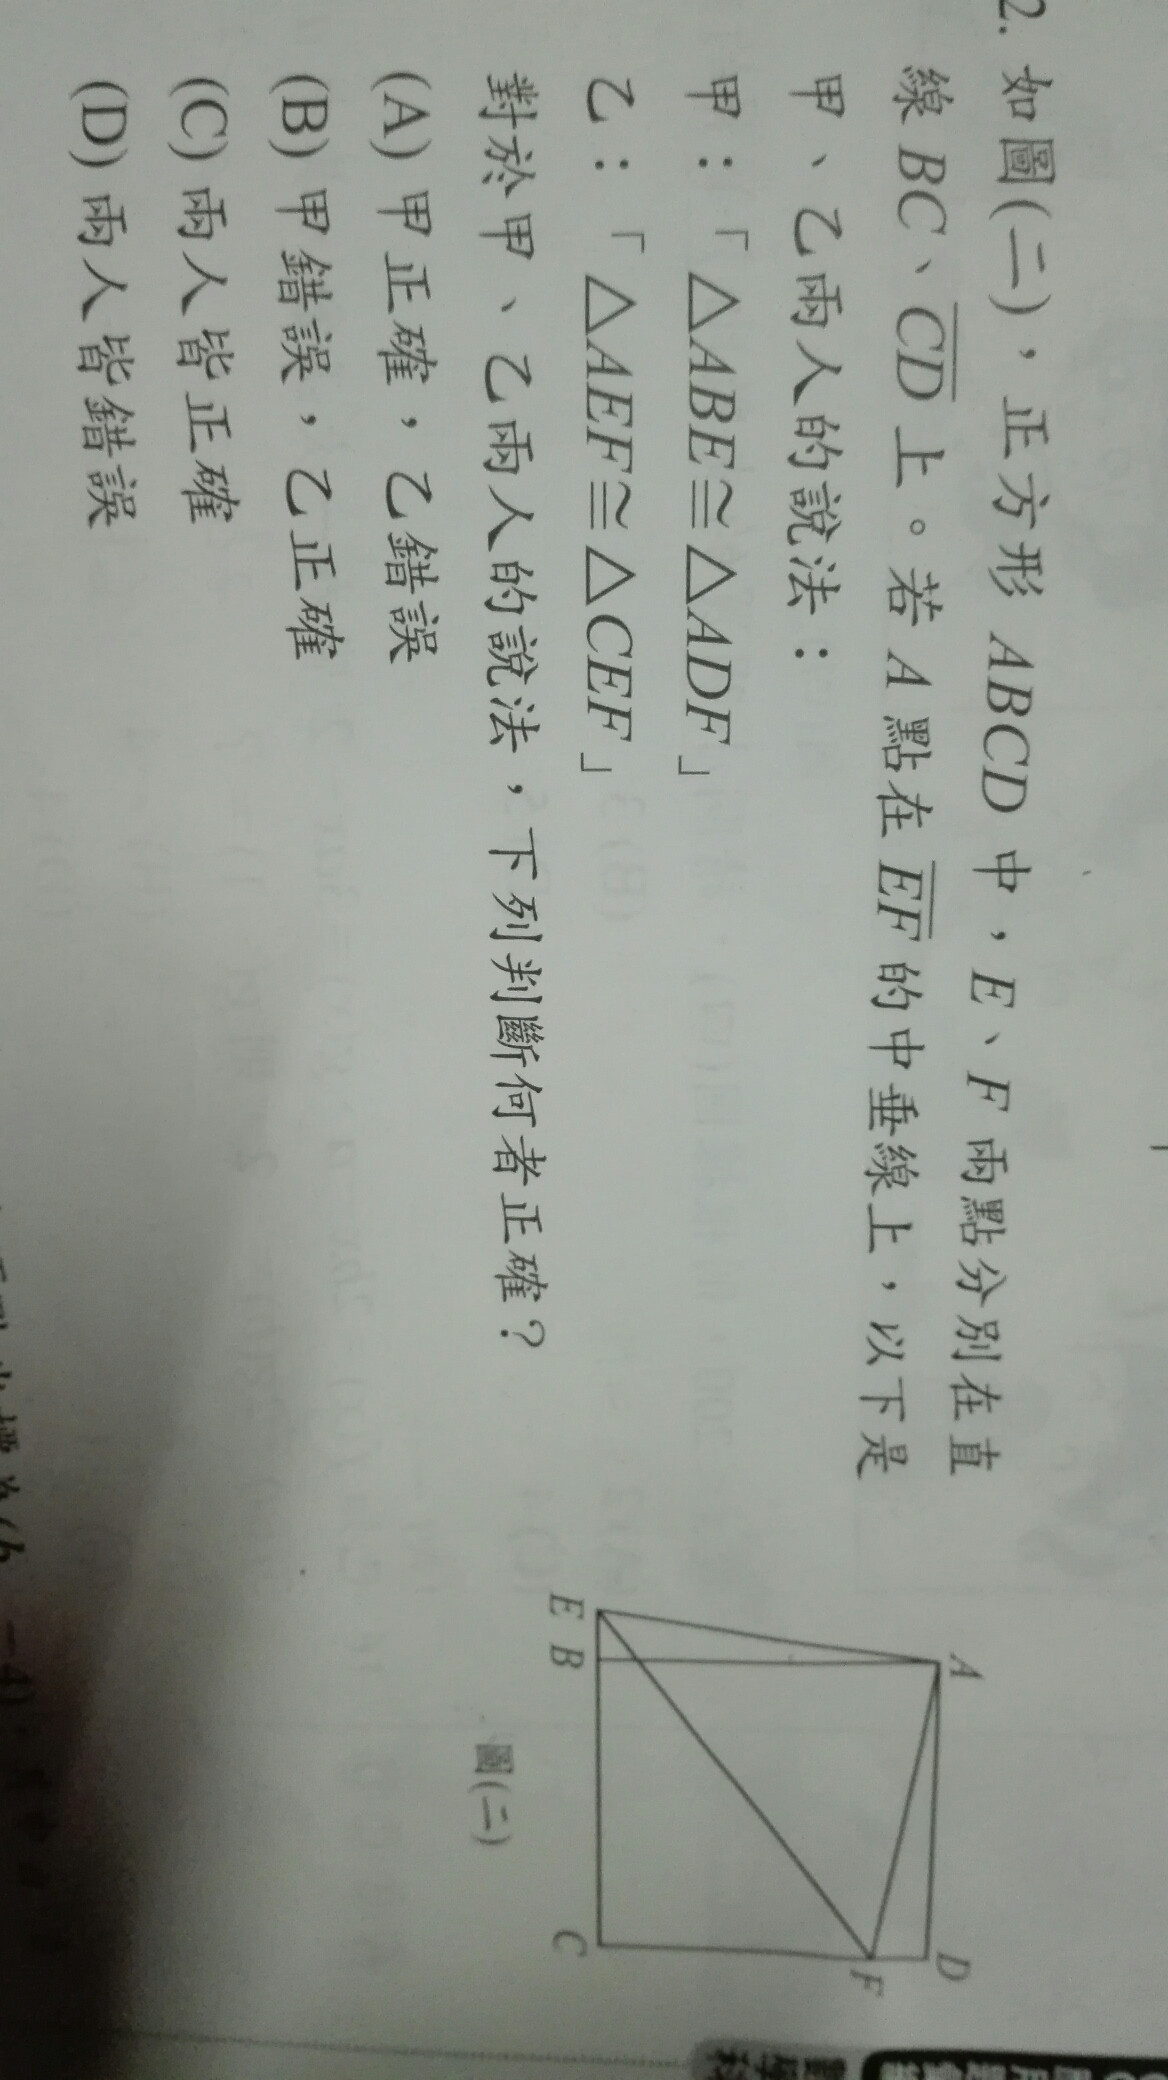 2. 如圖(二)，正方形 ABCD 中，E、F 兩點分別在直
線 BC、CD 上。若 A 點在 EF 的中垂線上，以下是
甲、乙兩人的說法：
甲：「△ABE≅△ADF」
乙：「△AEF≅△CEF」
對於甲、乙兩人的說法，下列判斷何者正確？
(A) 甲正確，乙錯誤
(B) 甲錯誤，乙正確
(C) 兩人皆正確
(D) 兩人皆錯誤
A
D
F
E
B
C
圖(二)